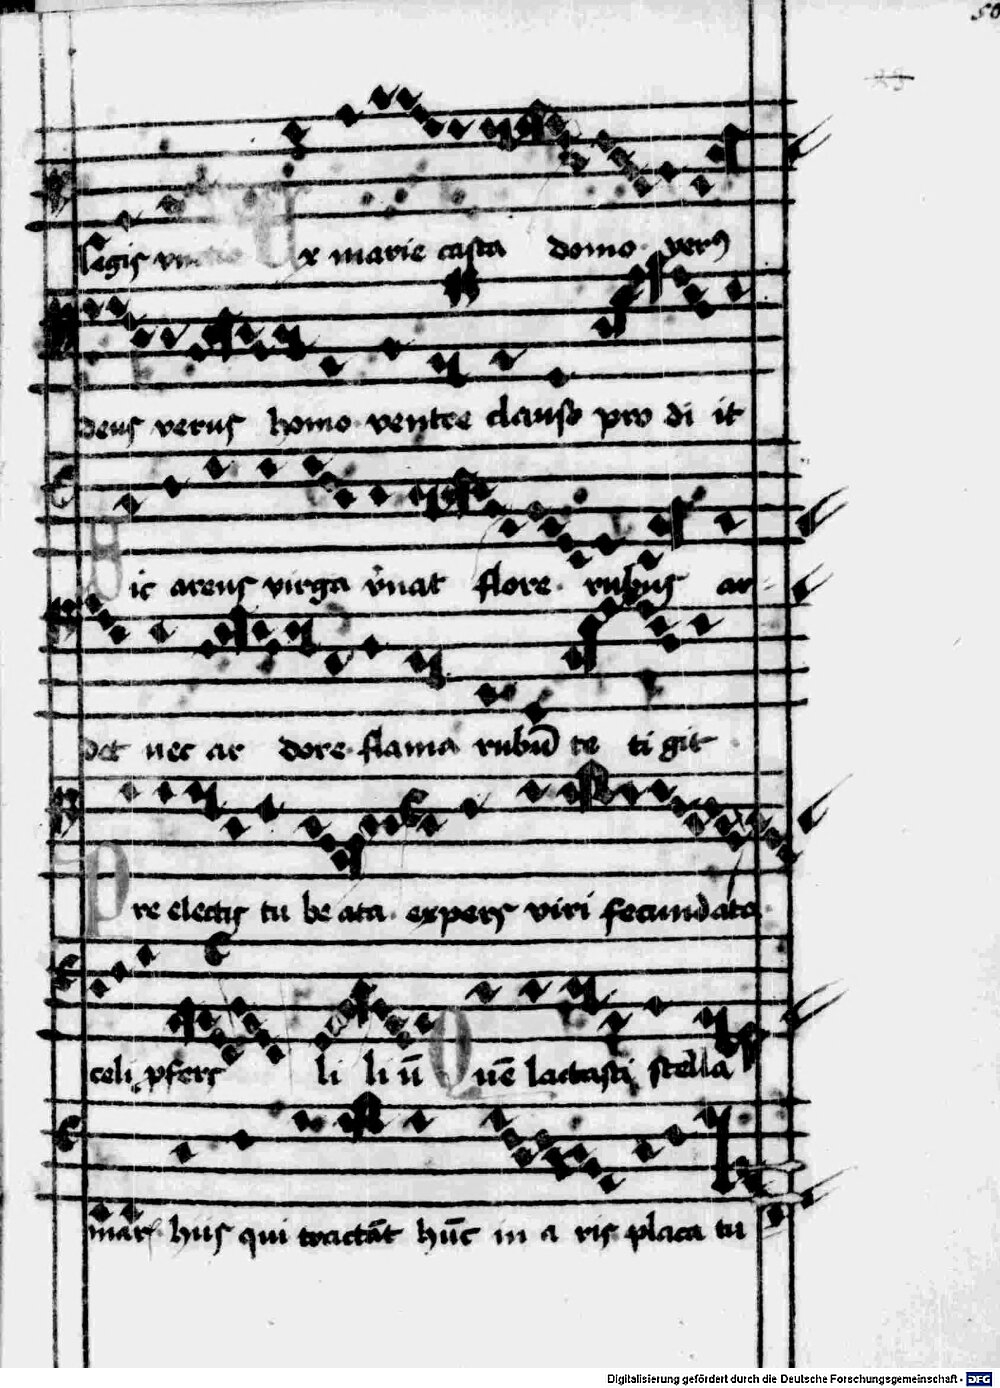 50
legis
Ex marie casta domo verꝰ
deus verus homo ventre clauso pro di it
Sic arens virga v̄nat flore rubus ar
det nec ar dore flama rubū te ti git
Pre electis tu be ata expers viri fecundata
celi ꝓfers li li ū Quē lactasti stella
mar hiis qui tractāt hūc in a ris placa tu
Digitalisierung gefördert durch die Deutsche Forschungsgemeinschaft - DFG